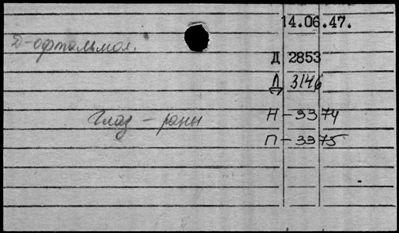 14.06.47.
Д-офтальмол.
Д 2853
Д 3146
Глаз – раны Н – 3374
П – 3375